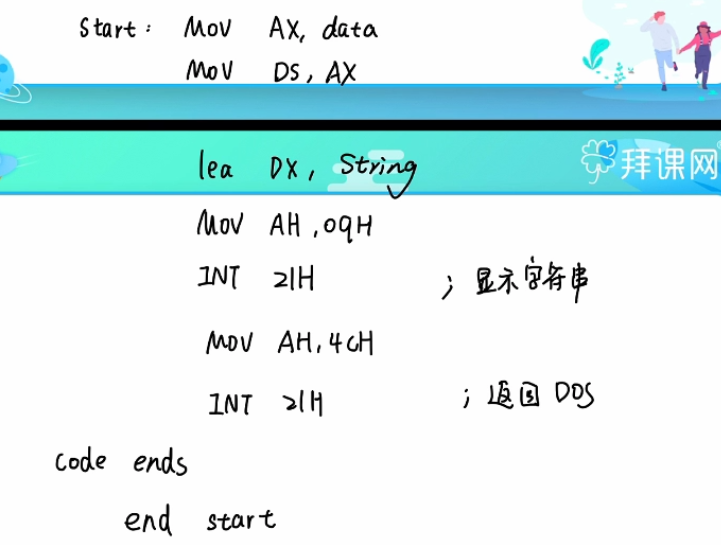 Start: Mov AX, data
Mov DS, AX
lea DX, String
拜课网
Mov AH, 09H
INT 21H ; 显示字符串
Mov AH, 4cH
INT 21H ; 返回 DOS
code ends
end start